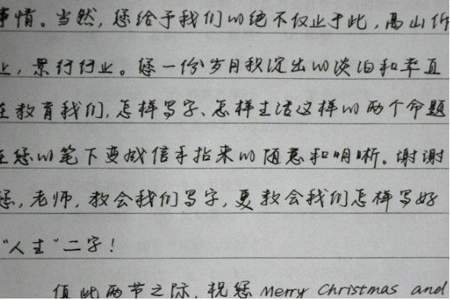 事情。当然,您给予我们的绝不仅止于此,高山仰
止,景行行止。您一份岁月积淀出的淡泊和率直
在教育我们,怎样写字、怎样生活这样的两个命题
在您的笔下变成信手拈来的随意和明晰。谢谢
您,老师,教会我们写字,更教会我们怎样写好
“人生”二字!
值此两节之际,祝您Merry Christmas and